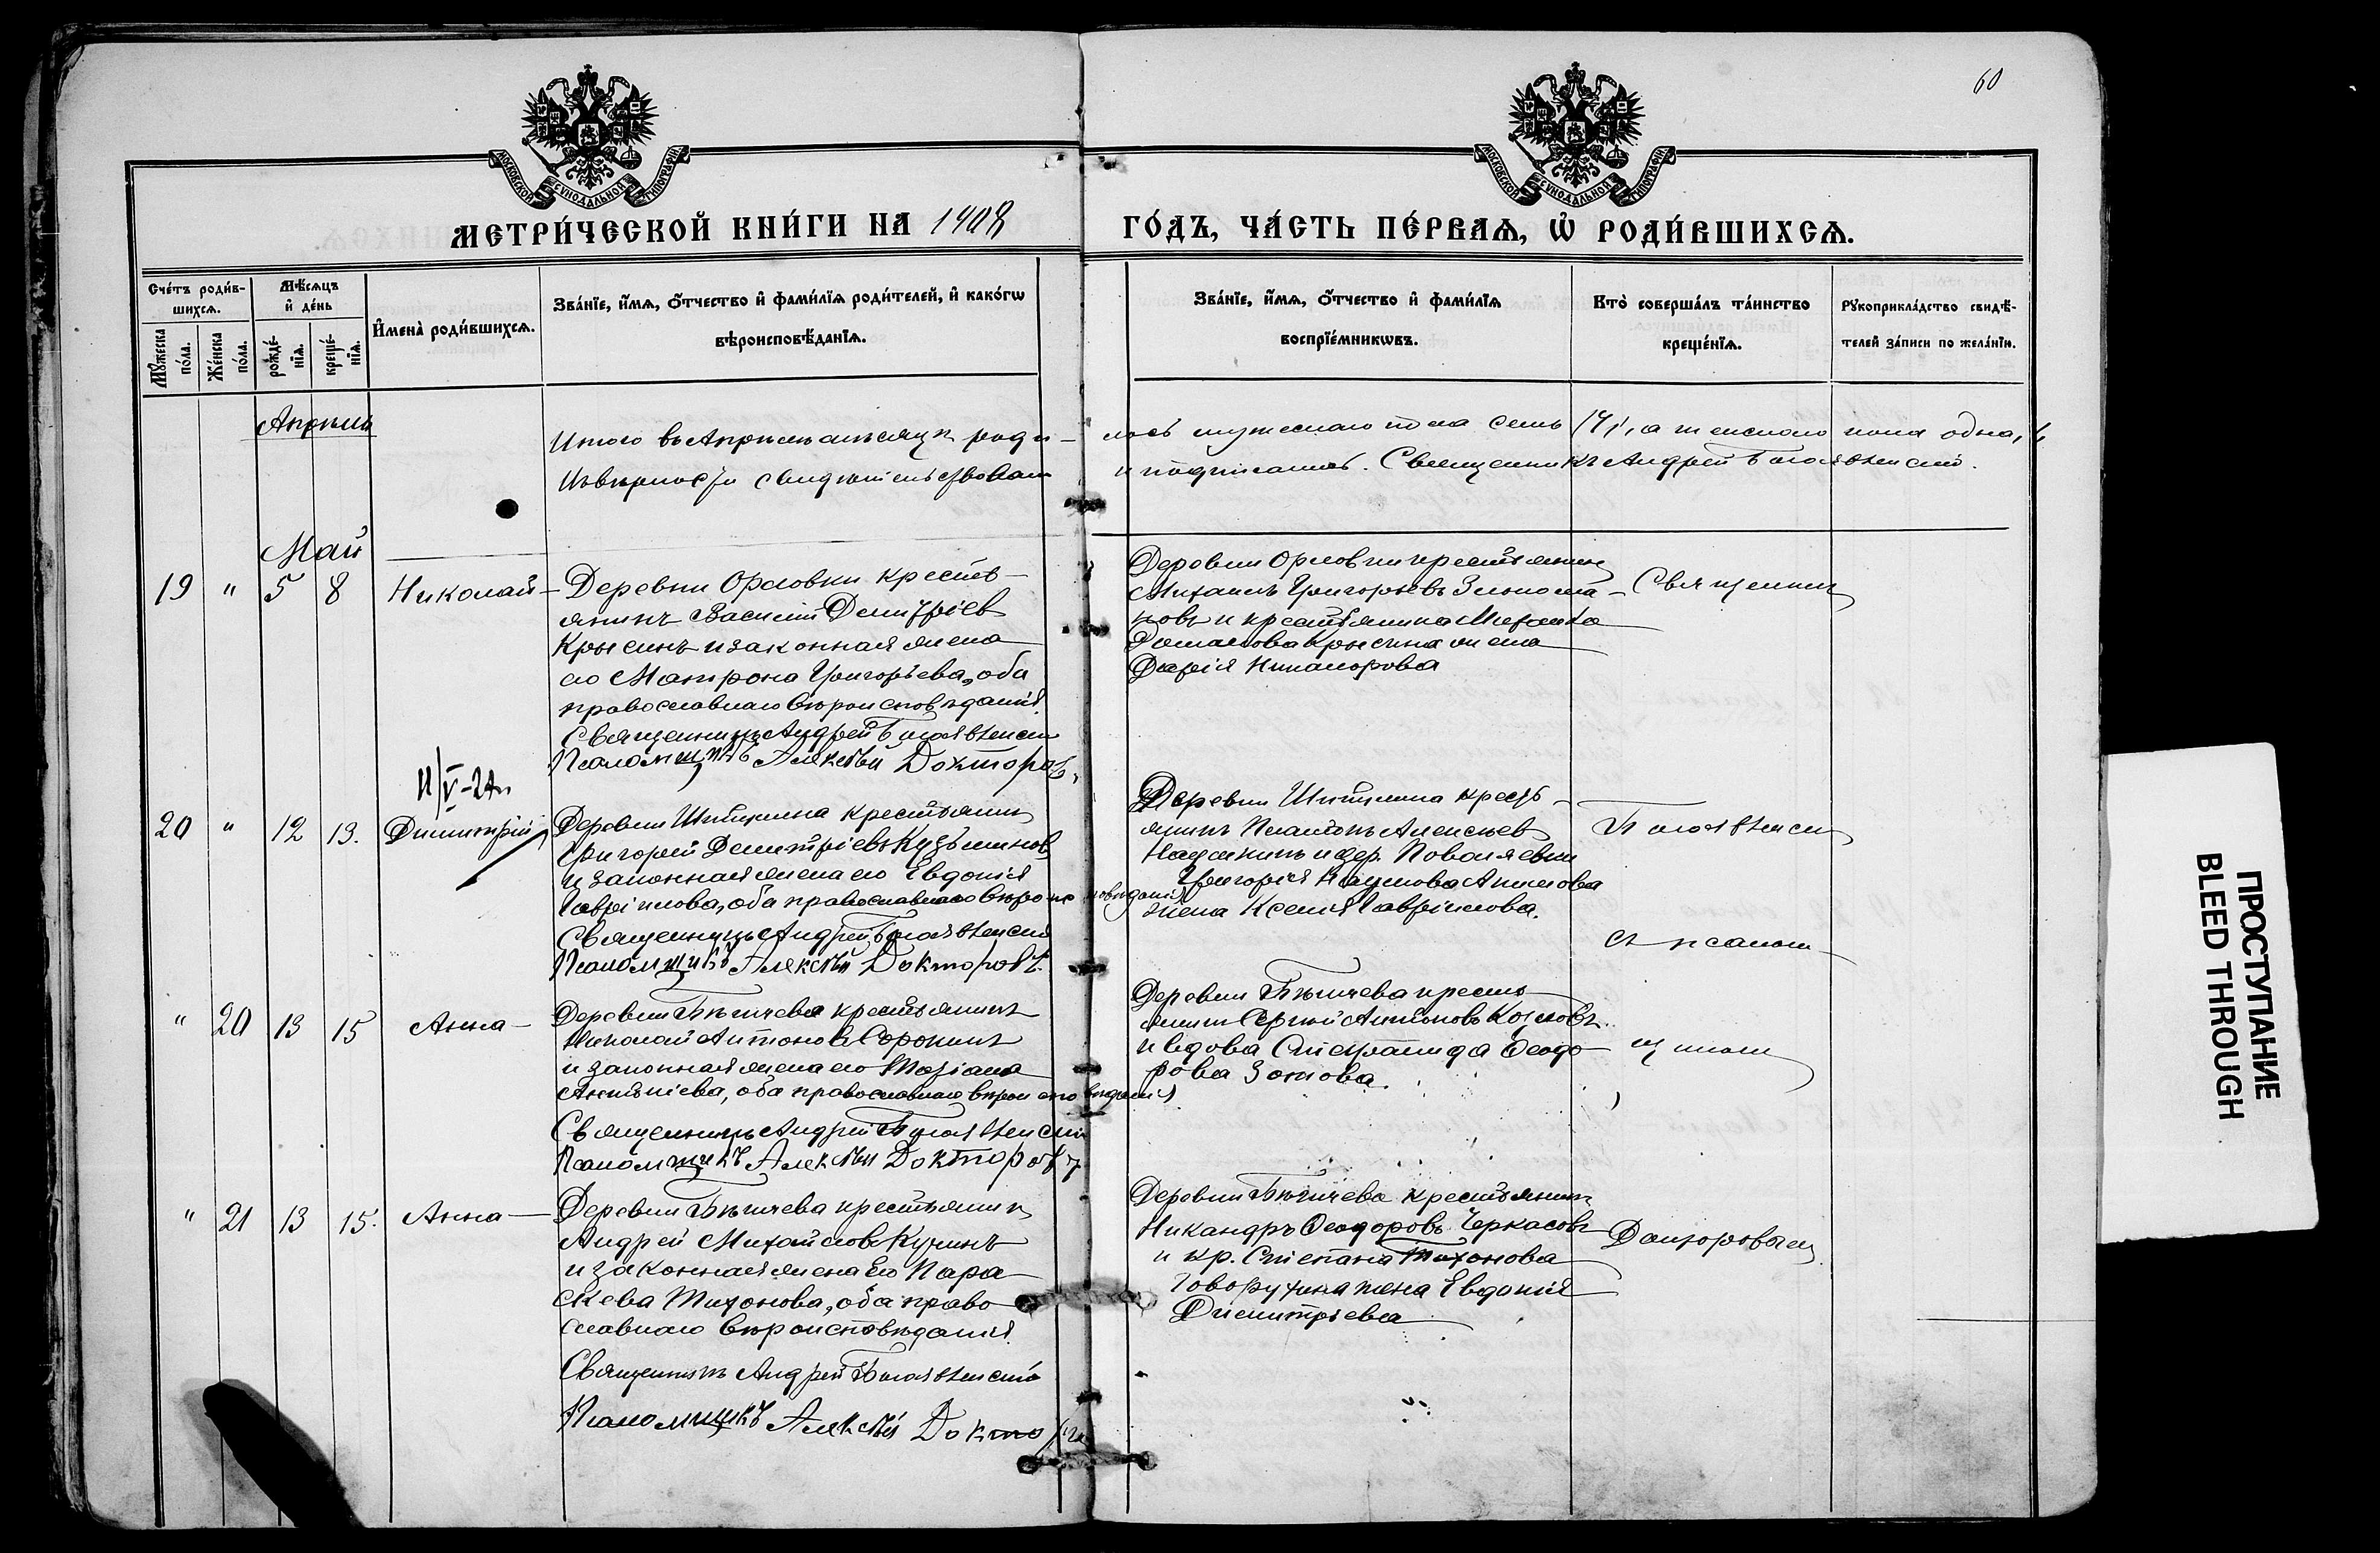 60
МОСКОВСКОЙ СУНОДАЛЬНОЙ ТИПОГРАФІИ
МОСКОВСКОЙ СУНОДАЛЬНОЙ ТИПОГРАФІИ
МЕТРИ́ЧЕСКОЙ КНИ́ГИ НА 1908
ГО́ДЪ, ЧА́СТЬ ПЕ́РВАѦ, Ѡ҆ РОДИ́ВШИХСѦ.
Сче́тъ роди́в-
шихсѧ.
Мꙋ́жеска по́ла.
Же́нска по́ла.
Мѣ́сѧцъ
и҆ де́нь
рожде́-
нїѧ.
креще́-
нїѧ.
И҆мена̀ роди́вшихсѧ.
Зва́нїе, и҆́мѧ, ѻ҆́тчество и҆ фами́лїѧ роди́телей, и҆ како́гѡ
вѣроисповѣ́данїѧ.
Зва́нїе, и҆́мѧ, ѻ҆́тчество и҆ фами́лїѧ
воспрїе́мникѡвъ.
Кто̀ соверша́лъ та́инство
креще́нїѧ.
Рꙋкоприкла́дство свидѣ́-
телей за́писи по жела́нїю.
Апрѣль
Итого въ Апрѣлѣ мѣсяцѣ роди-
лось мужескаго пола семь /7/, а женскаго пола одна,
свидѣтельствовали
и подписались. Священникъ Андрей Богоявленскій.
Май
19 " 5 8 Николай
Деревни Орловки кресть-
янинъ Василій Димитріев
Крысинъ и законная жена
его Матрона Григорьева, оба
православнаго вѣроисповѣданія.
Священникъ Андрей Богоявленскій
Псаломщикъ Алексѣй Докторовъ.
Деревни Орловки крестьянинъ
Михаилъ Григорьевъ
и крестьянина Михаила
Крысина жена
Дарія Никанорова
Священник
20 " 12 13. Димитрій
Деревни крестьянин
Григорій Димитріевъ Кузьминов
и законная жена его Евдокія
Гавріилова, оба православнаго вѣроисповѣданія
Священникъ Андрей Богоявленскій
Псаломщикъ Алексѣй Докторовъ.
Деревни кресть-
янинъ Платонъ Алексѣев
и дер.
Григорія Наумова
жена Ксенія Гавріилова.
Богоявленскій
съ псалом-
" 20 13 15 Анна
Деревни Бѣгичева крестьянинъ
Николай Антонов Сорокинъ
и законная жена его
оба православнаго вѣроисповѣданія
Священникъ Андрей Богоявленскій
Псаломщикъ Алексѣй Докторовъ
Деревни Бѣгичева кресть-
янин Сергій Антоновъ Козловъ
и вдова Степанида Ѳеодо-
рова Зотова.
щиком
" 21 13 15. Анна
Деревни Бѣгичева крестьянин
Андрей Михайлов
и законная жена его Пара-
скева Тихонова, оба право-
славнаго вѣроисповѣданія
Священникъ Андрей Богоявленскій
Псаломщикъ Алексѣй Докторовъ
Деревни Бѣгичева крестьянин
Никандръ Ѳеодоровъ Черкасовъ
и кр. Степана Тихонова
жена Евдокія
Димитріева
Докторовым
ПРОСТУПАНИЕ
BLEED THROUGH